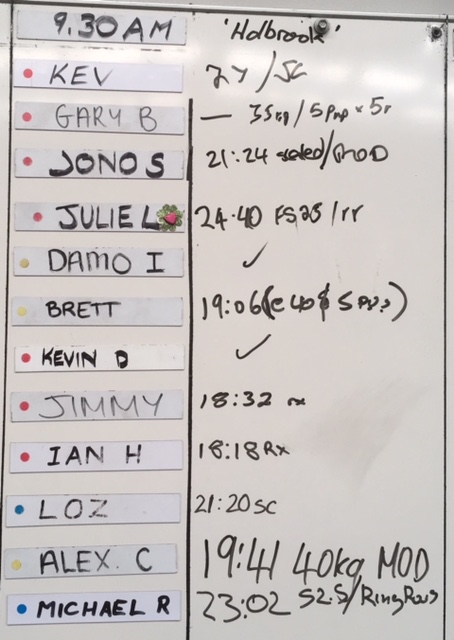 9.30AM 'Holbrook'
KEV /SC
GARY B — 35kg / 5 Pup x 5r
JONO S 21:24 /MOD
JULIE L 24.40 FS25 /rr
DAMO I ✓
BRETT 19:06
KEVIN D ✓
JIMMY 18:32 rx
IAN H 18:18 Rx
LOZ 21:20 SC
ALEX. C 19:41 40kg MOD
MICHAEL R 23:02 52.5/Ring Rows